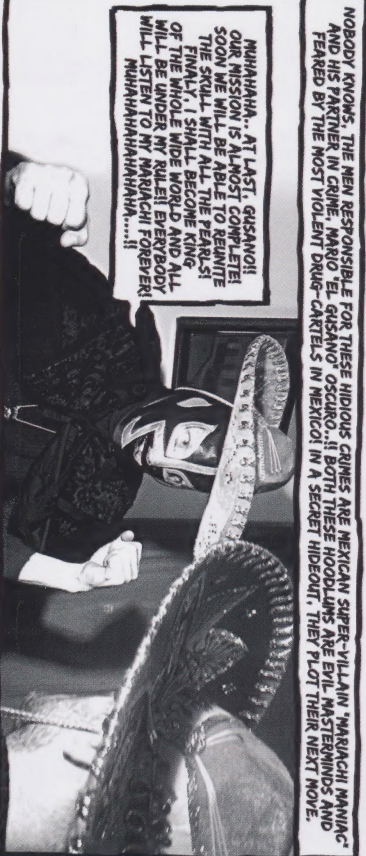 NOBODY KNOWS, THE MEN RESPONSIBLE FOR THESE HIDIOUS CRIMES ARE MEXICAN SUPER-VILLAIN 'MARIACHI MANIAC'
AND HIS PARTNER IN CRIME, MARIO 'EL GUSANO' OSCURO..!! BOTH THESE HOODLUMS ARE EVIL MASTERMINDS AND
FEARED BY THE MOST VIOLENT DRUG-CARTELS IN MEXICO! IN A SECRET HIDEOUT, THEY PLOT THEIR NEXT MOVE.
MUHAHAHA.. AT LAST, GUSANO!!
OUR MISSION IS ALMOST COMPLETE!
SOON WE WILL BE ABLE TO REUNITE
THE SKULL WITH ALL THE PEARLS!
FINALY, I SHALL BECOME KING
OF THE WHOLE WIDE WORLD AND ALL
WILL BE UNDER MY RULE!! EVERYBODY
WILL LISTEN TO MY MARIACHI FOREVER!
MUHAHAHAHAHAHAHA....!!